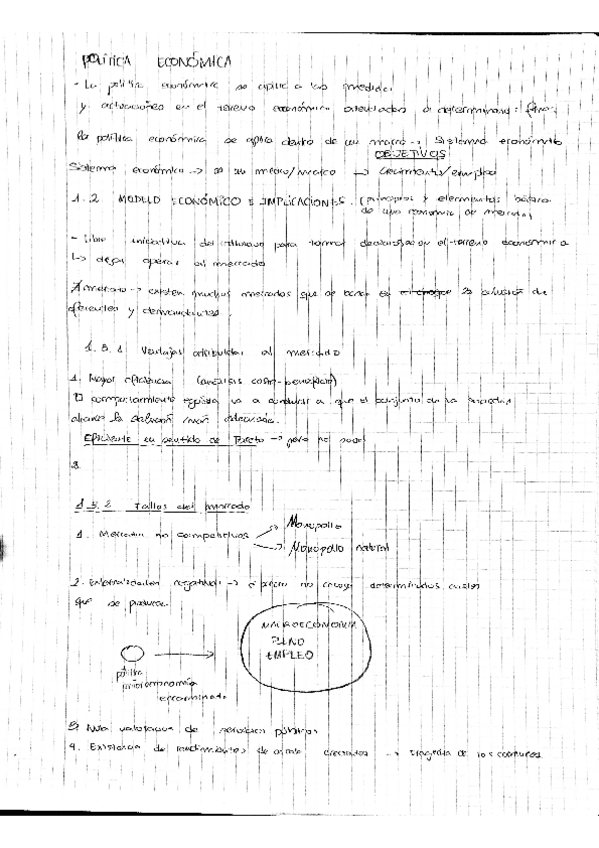 POLÍTICA ECONÓMICA
- La política económica se aplica a las medidas
y actuaciones en el terreno económico orientadas a determinados fines.
La política económica se aplica dentro de un marco → Sistema económico
OBJETIVOS
Sistema económico → es su medio/marco → crecimiento/empleo
1.2 MODELO ECONÓMICO E IMPLICACIONES. (principios y elementos básicos
de una economía de mercado)
- Libre iniciativa del para tomar decisiones en el terreno económico
↳ dejar operar al mercado
→ existen muchos mercados que se basan es la de
oferentes y demandantes.
1.3.1 Ventajas atribuidas al mercado
1. Mayor eficiencia (análisis coste-beneficio)
El comportamiento egoísta va a conducir a que el conjunto de la sociedad
alcance la más adecuada.
Eficiente en sentido de Pareto → pero no social
2.
1.3.2 Fallos del mercado
1. Mercados no competitivos
→ Monopolio
→ Monopolio natural
2. Externalidades negativas → el precio no recoge determinados costes
que se producen.
MACROECONOMÍA
PLENO
EMPLEO
política
microeconomía
3. valoración de servicios públicos
4. Existencia de rendimientos de crecientes → tragedia de los comunes